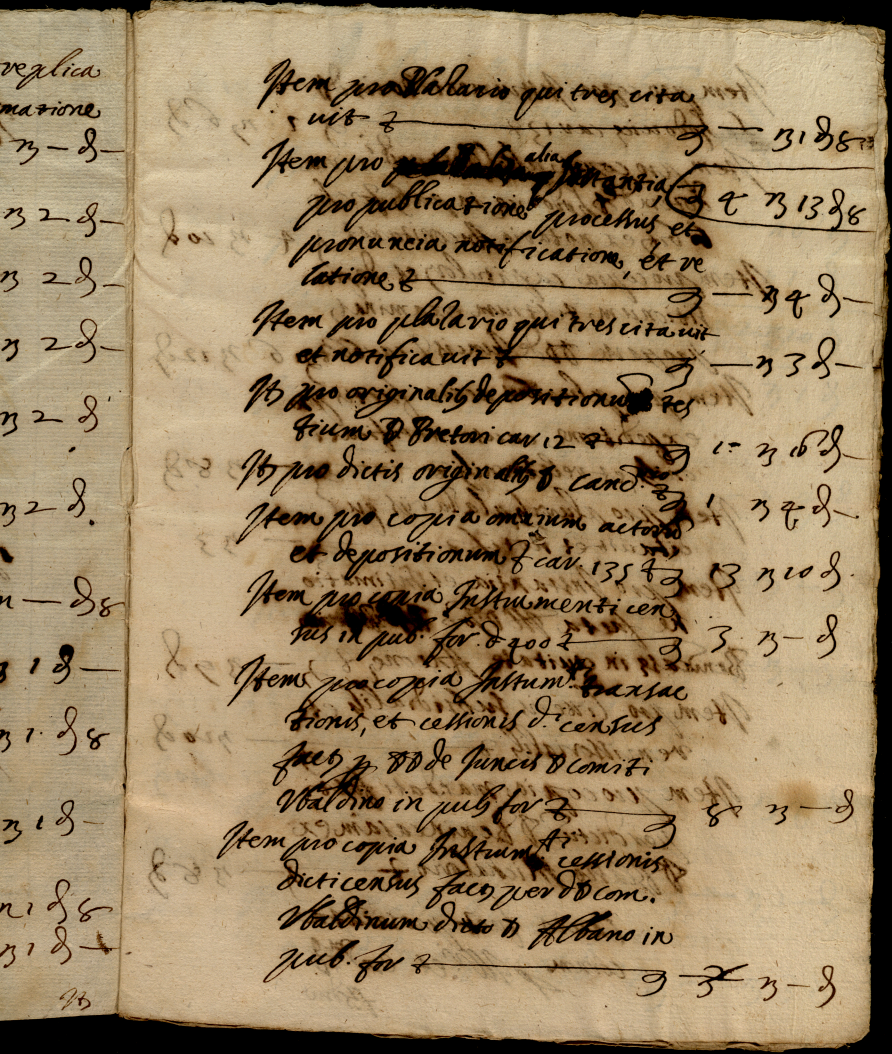 replica
matione
n — d —
n 2 d —
n 2 d —
n 2 d —
n 2 d
n 2 d.
n — d 8
n 1 d —
n 1 d 8
n 1 d —
n 1 d 8
n 1 d —
It
Item pro plalario qui tres cita
uit — n 1 d 8
Item pro alia Instantia
4 n 13 d 8
pro publicatione processus et
pronuncia notificatione, et re
latione — n 4 d —
Item pro plalario qui tres citauit
et notificauit — n 3 d —
It pro originalib depositionum tes
tium D Pretori car 12 1 n 16 d —
It pro dictis originalib D. Canc 1 n 4 d —
Item pro copia omnium actorum
et depositionum car. 135 13 n 10 d.
Item pro copia Instrumenti cen
sus in pub. for. d 400 3 n — d
Item pro copia Instrum transac
tionis, et cessionis d.i census
fact p DD de Juncis D comiti
Vbaldino in pub for 8 n — d
Item pro copia Instrum.ti cessionis
dicti census fact per D D com.
Vbaldinum dicto D Albano in
pub. for 3 n — d